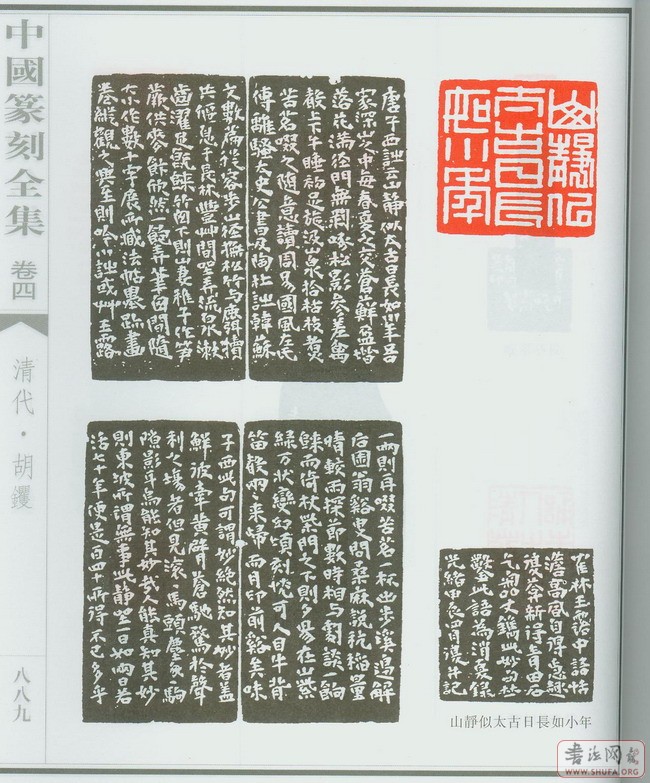 中國篆刻全集 卷四
清代·胡钁
八八九
山靜似
太古日長
如小年
唐子西詩云山靜似太古日長如小年吾
家深山之中每春夏之交蒼蘚盈階
落花滿徑門無剝啄松影參差禽
聲上下午睡初足旋汲山泉拾枯枝煮
苦茗啜之隨意讀周易國風左氏
傳離騷太史公書及陶杜詩韓蘇
文數篇從容步山徑撫松竹與麛犢
共偃息于長林豐艸間坐弄流泉漱
齒濯足既歸竹窗下則山妻稚子作筍
蕨供麥飯欣然一飽弄筆窗間隨
大小作數十字展所藏法帖墨跡畫
卷縱觀之興至則吟小詩或艸玉露
一兩則再啜苦茗一杯出步溪邊解
后園翁谿叟問桑麻說秔稻量
晴較雨探節數時相與劇談一餉
歸而倚杖柴門之下則夕陽在山紫
綠万狀變幻頃刻恍可人目牛背
笛聲兩兩來歸而月印前谿矣味
子西此句可謂妙絕然知其妙者蓋
鮮彼牽黃臂蒼馳騖於聲
利之場者但見滾滾馬頭塵匆匆駒
隙影耳烏能知其妙哉人能真知其妙
則東坡所謂無事此靜坐一日如兩日若
活七十年便是百四十所得不已多乎
林玉露中語恬
澹高風
新得青田石
此語為
光緒甲辰四月 并記
山靜似太古日長如小年
書法网
WWW.SHUFA.ORG